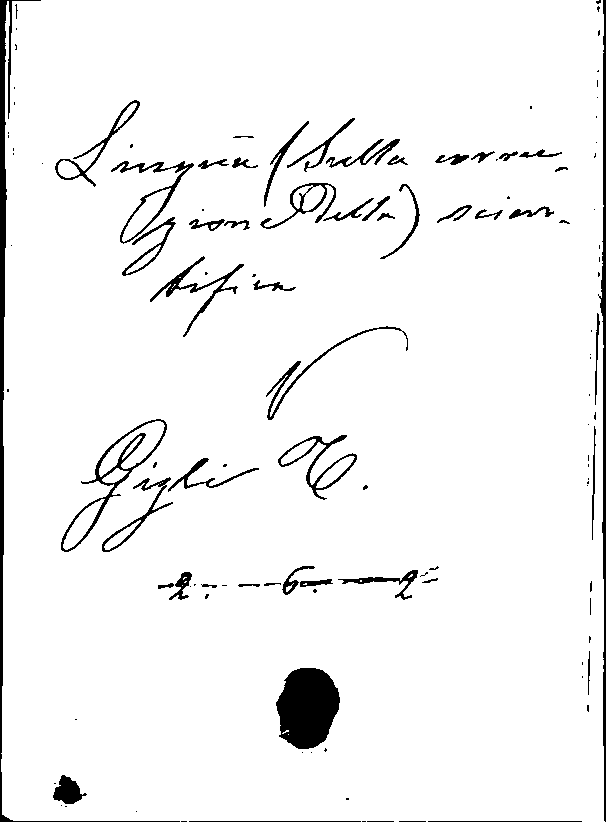 Lingua (Sulla corru-
zione della) scien-
tifica
V
Gigli T.
2. 6. 2